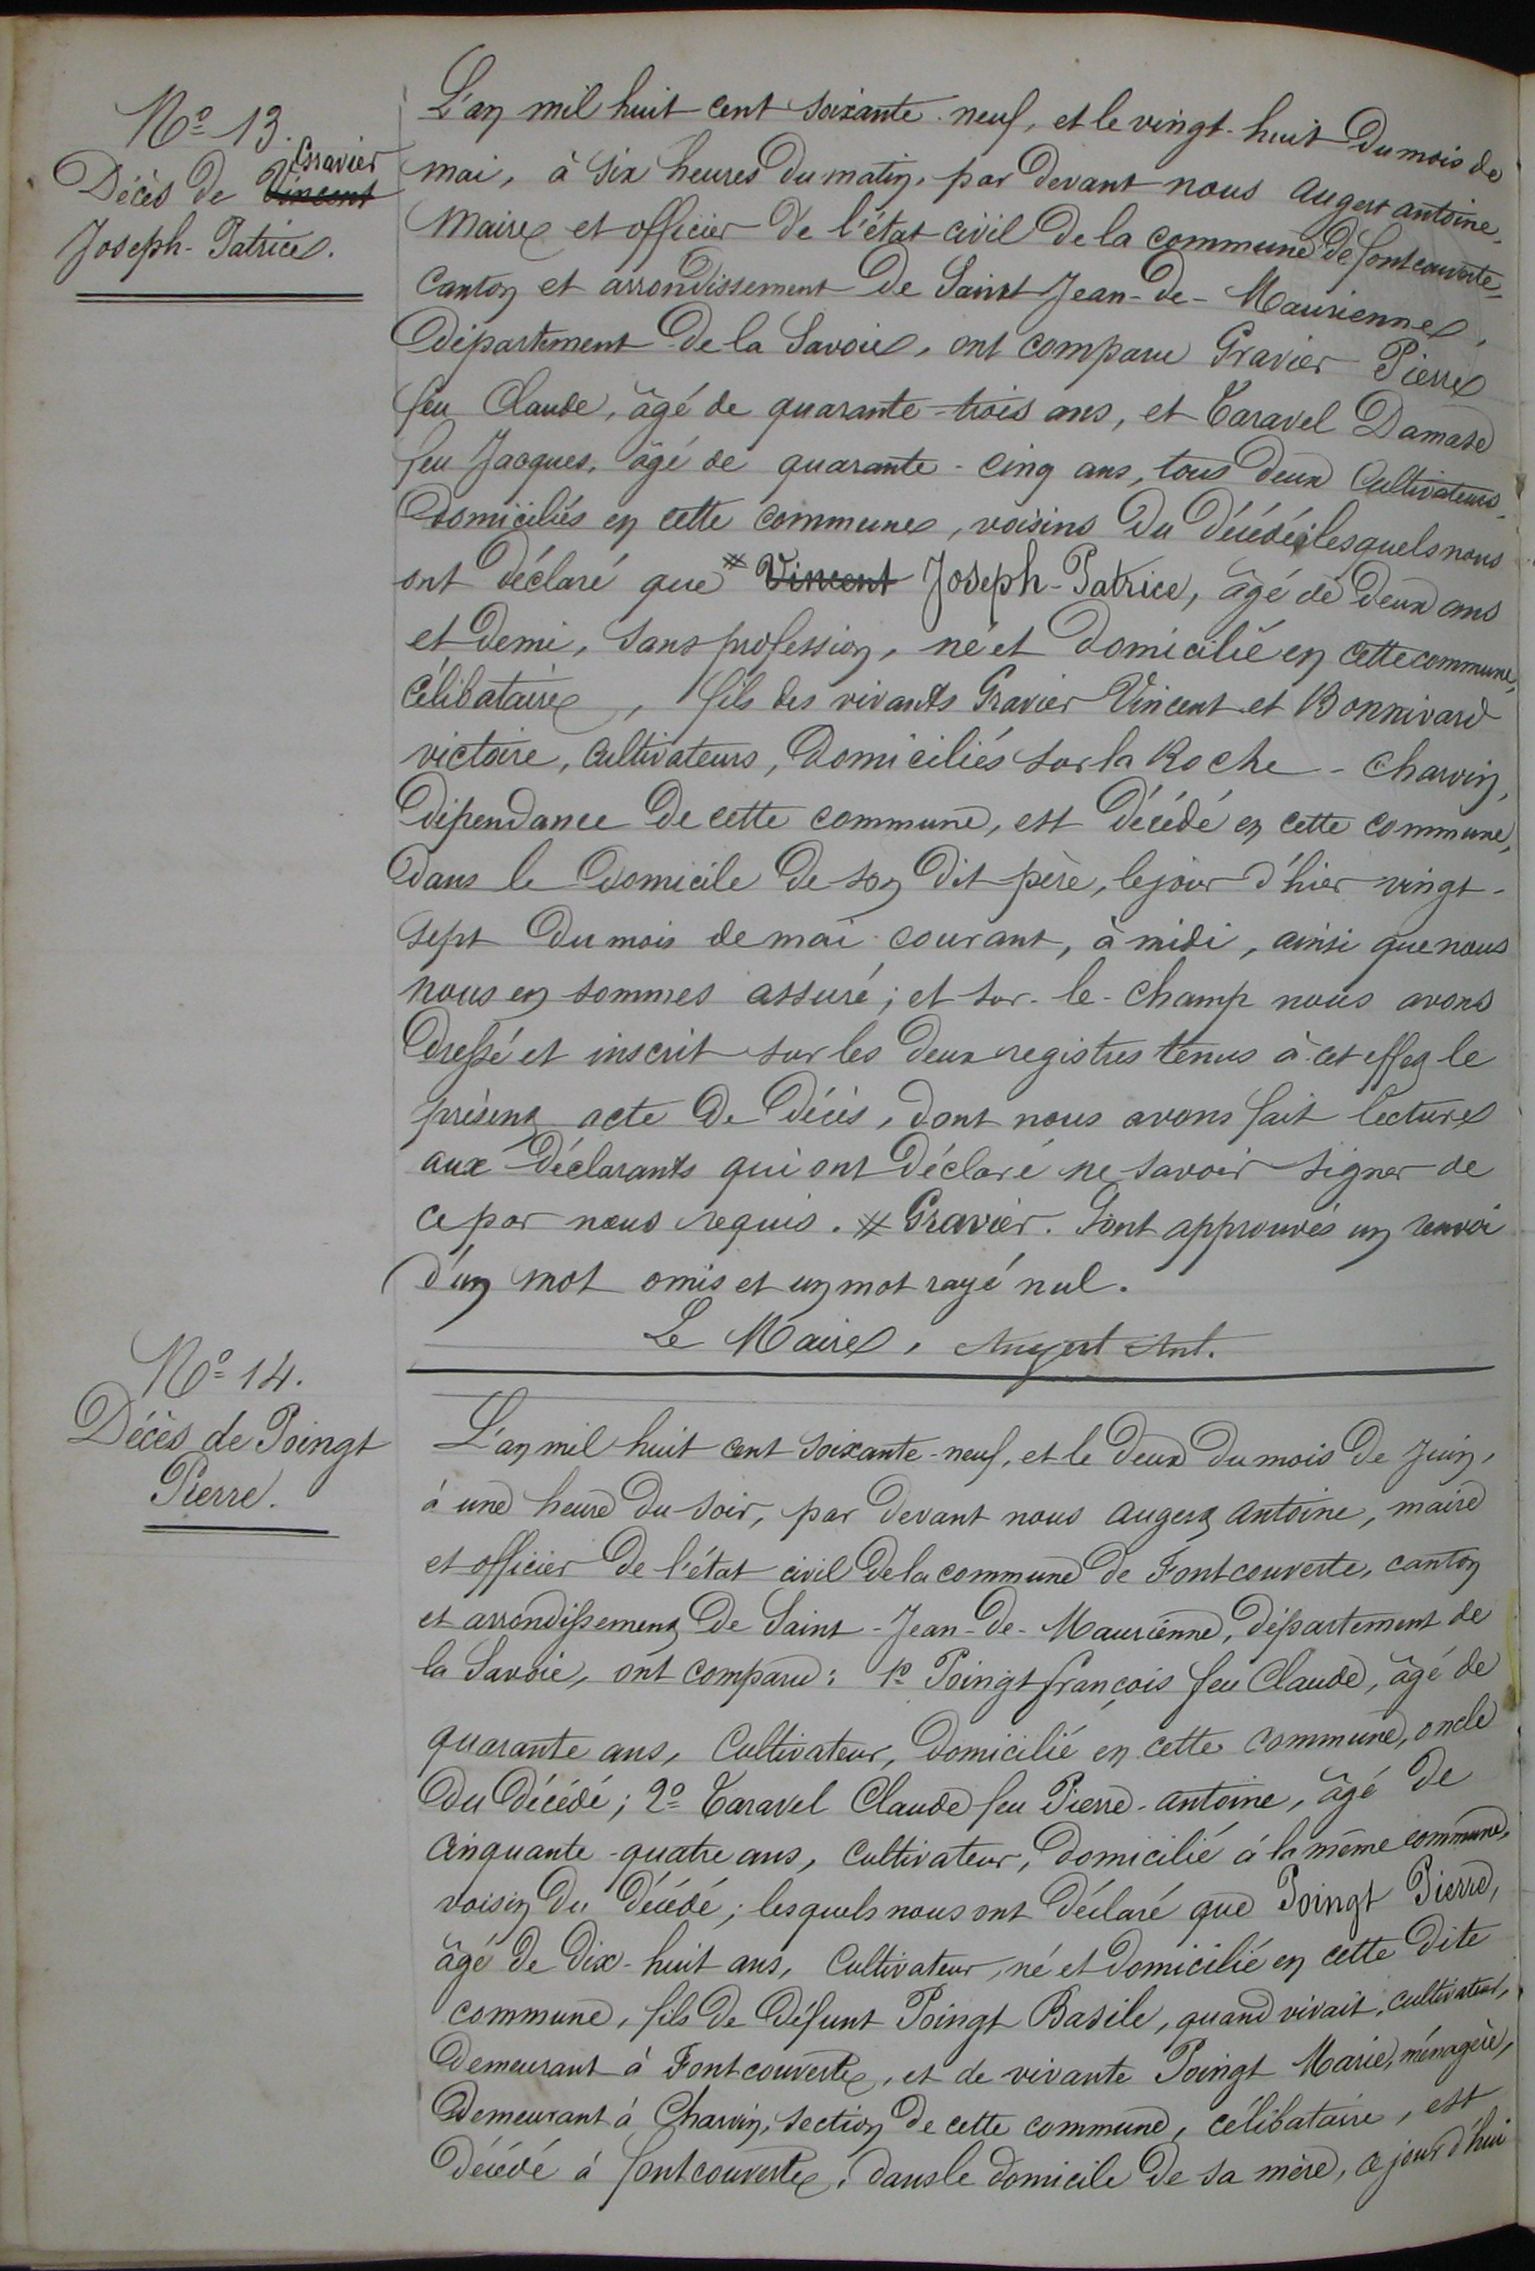 Nº 13.
Gravier
Décès de Vincent
Joseph-Patrice.
L'an mil huit cent soixante-neuf, et le vingt-huit du mois de
mai, à six heures du matin, par devant nous Augert antoine,
Maire et officier de l'état civil de la commune de fontcouverte,
Canton et arrondissement de Saint Jean-de-Maurienne,
département de la Savoie, ont comparu Gravier Pierre
feu Claude, âgé de quarante-trois ans, et Taravel Damase
feu Jacques, âgé de quarante-cinq ans, tous deux Cultivateurs,
domiciliés en cette commune, voisins du décédé; lesquels nous
ont déclaré que # Vincent Joseph-Patrice, âgé de deux ans
et demi, sans profession, né et domicilié en cette commune,
Célibataire, fils des vivants Gravier Vincent et Bonnivard
victoire, cultivateurs, domiciliés sur la Roche-Charvin,
dépendance de cette commune, est décédé en cette commune,
dans le domicile de son dit père, le jour d'hier vingt-
sept du mois de mai courant, à midi, ainsi que nous
nous en sommes assuré; et sur-le-champ nous avons
dressé et inscrit sur les deux registres tenus à cet effet le
présent acte de décès, dont nous avons fait lecture
aux déclarants qui ont déclaré ne savoir signer de
ce par nous requis. # Gravier. Sont approuvés un renvoi
d'un mot omis et un mot rayé nul.
Le Maire, Augert Ant.
Nº 14.
Décès de Poingt
Pierre.
L'an mil huit cent soixante-neuf, et le deux du mois de juin,
à une heure du soir, par devant nous Augert Antoine, maire
et officier de l'état civil de la commune de Fontcouverte, canton
et arrondissement de Saint-Jean-de-Maurienne, département de
la Savoie, ont comparu: 1º Poingt françois feu Claude, âgé de
quarante ans, Cultivateur, domicilié en cette commune, oncle
du décédé; 2º Taravel Claude feu Pierre-antoine, âgé de
cinquante-quatre ans, cultivateur, domicilié à la même commune,
voisin du décédé; lesquels nous ont déclaré que Poingt Pierre,
âgé de dix-huit ans, Cultivateur, né et domicilié en cette dite
commune, fils de défunt Poingt Basile, quand vivait, cultivateur,
demeurant à Fontcouverte, et de vivante Poingt Marie, ménagère,
demeurant à Charvin, section de cette commune, célibataire, est
décédé à fontcouverte, dans le domicile de sa mère, ce jour d'hui